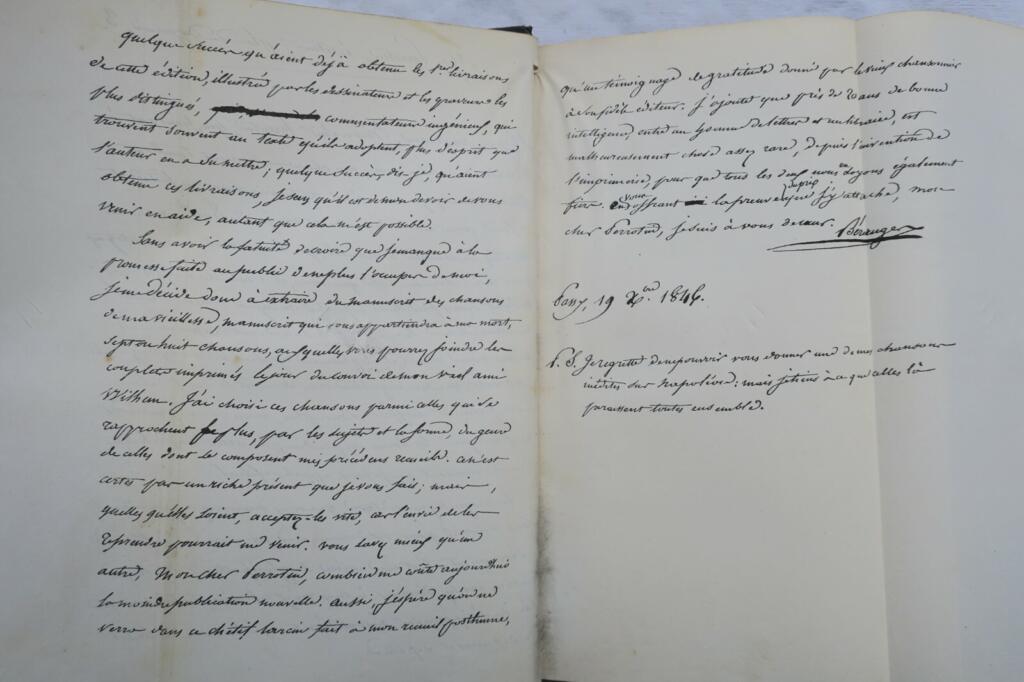 quelque succès qu'aient déjà obtenu les 1ères livraisons
de cette édition, illustrée par les dessinateurs et les graveurs les
plus distingués, commentateurs ingénieux, qui
trouvent souvent au texte qu'ils adoptent, plus d'esprit que
l'auteur en a su mettre; quelque succès, dis-je, qu'aient
obtenu ces livraisons, je sens qu'il est de mon devoir de vous
venir en aide, autant que cela m'est possible.
Sans avoir la fatuité de croire que je manque à la
promesse faite au public de ne plus l'occuper de moi,
je me décide donc à extraire du manuscrit des chansons
de ma vieillesse, manuscrit qui vous appartiendra à ma mort,
sept ou huit chansons, auxquelles vous pourrez joindre les
couplets imprimés le jour du convoi de mon vieil ami
Wilhem. J'ai choisi ces chansons parmi celles qui se
rapprochent le plus, par les sujets et la forme, du genre
de celles dont se composent mes précédens recueils. Ce n'est
certes pas un riche présent que je vous fais; mais,
quelles qu'elles soient, acceptez-les vite, car l'envie de les
reprendre pourrait me venir. Vous savez mieux qu'un
autre, mon cher Perrotin, combien me coûte aujourd'hui
la moindre publication nouvelle. Aussi, j'espère qu'on ne
verra dans ce chétif larcin fait à mon recueil posthume,
qu'un témoignage de gratitude donné par le vieux chansonnier
à son fidèle éditeur. J'ajoute que près de 20 ans de bonne
intelligence entre un homme de lettres et un libraire, est
malheureusement chose assez rare, depuis l'invention de
l'imprimerie, pour que tous les deux nous en soyons également
fiers. En vous offrant la preuve du prix que j'y attache, mon
cher Perrotin, je suis à vous de cœur. Béranger
Passy, 19 Xbre. 1846.
P. S. Je regrette de ne pouvoir vous donner une de mes chansons
inédites sur Napoléon: mais je tiens à ce que celles-là
paraissent toutes ensemble.